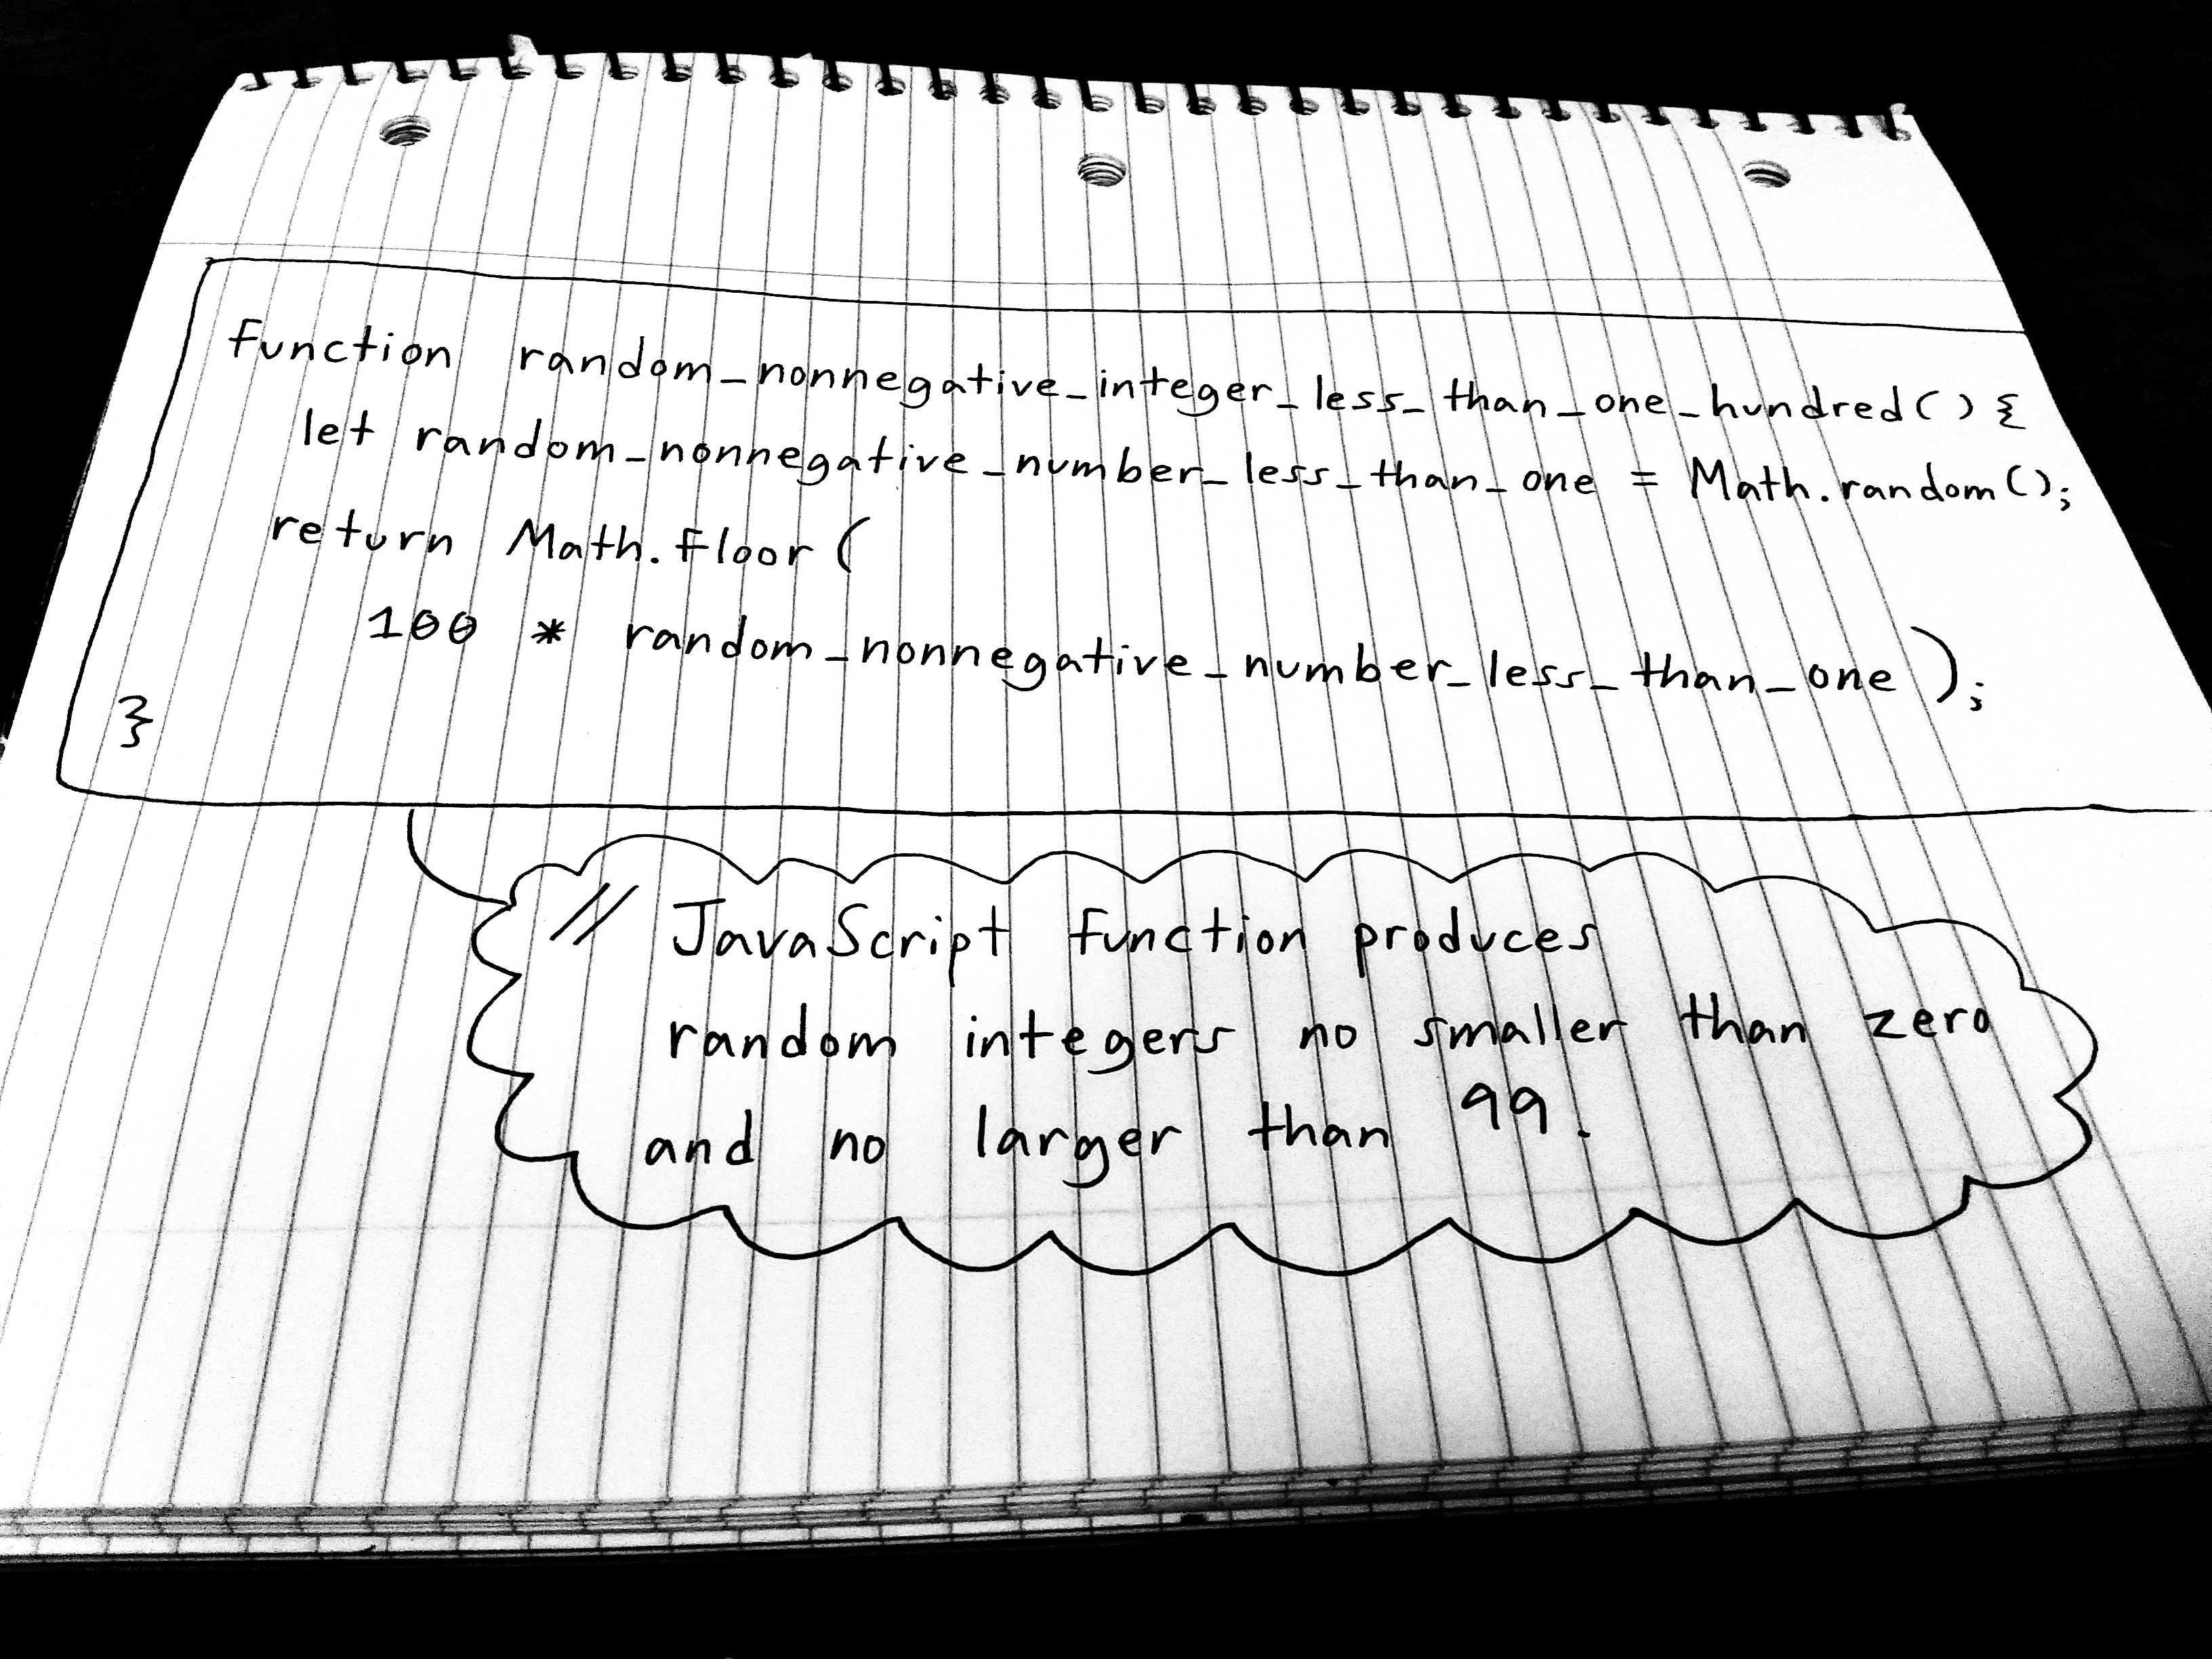 function random_nonnegative_integer_less_than_one_hundred() {
let random_nonnegative_number_less_than_one = Math.random();
return Math.floor(
100 * random_nonnegative_number_less_than_one );
}
// JavaScript function produces
random integers no smaller than zero
and no larger than 99.